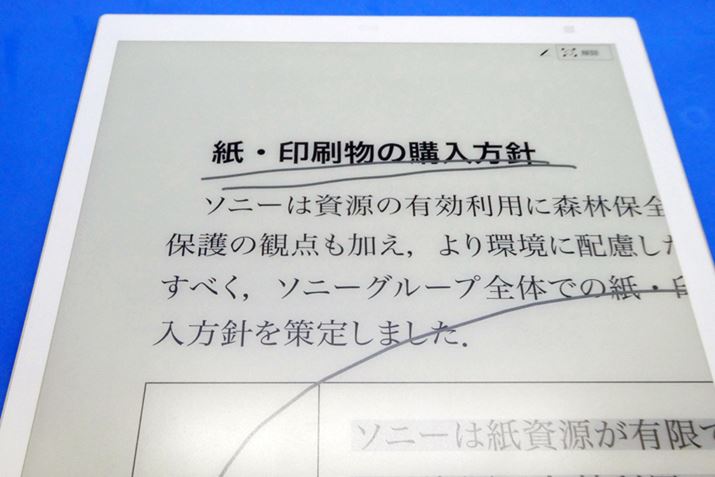 解除
紙・印刷物の購入方針
ソニーは資源の有効利用に森林保全
保護の観点も加え，より環境に配慮した
すべく，ソニーグループ全体での紙・印
入方針を策定しました．
ソニーは紙資源が有限で